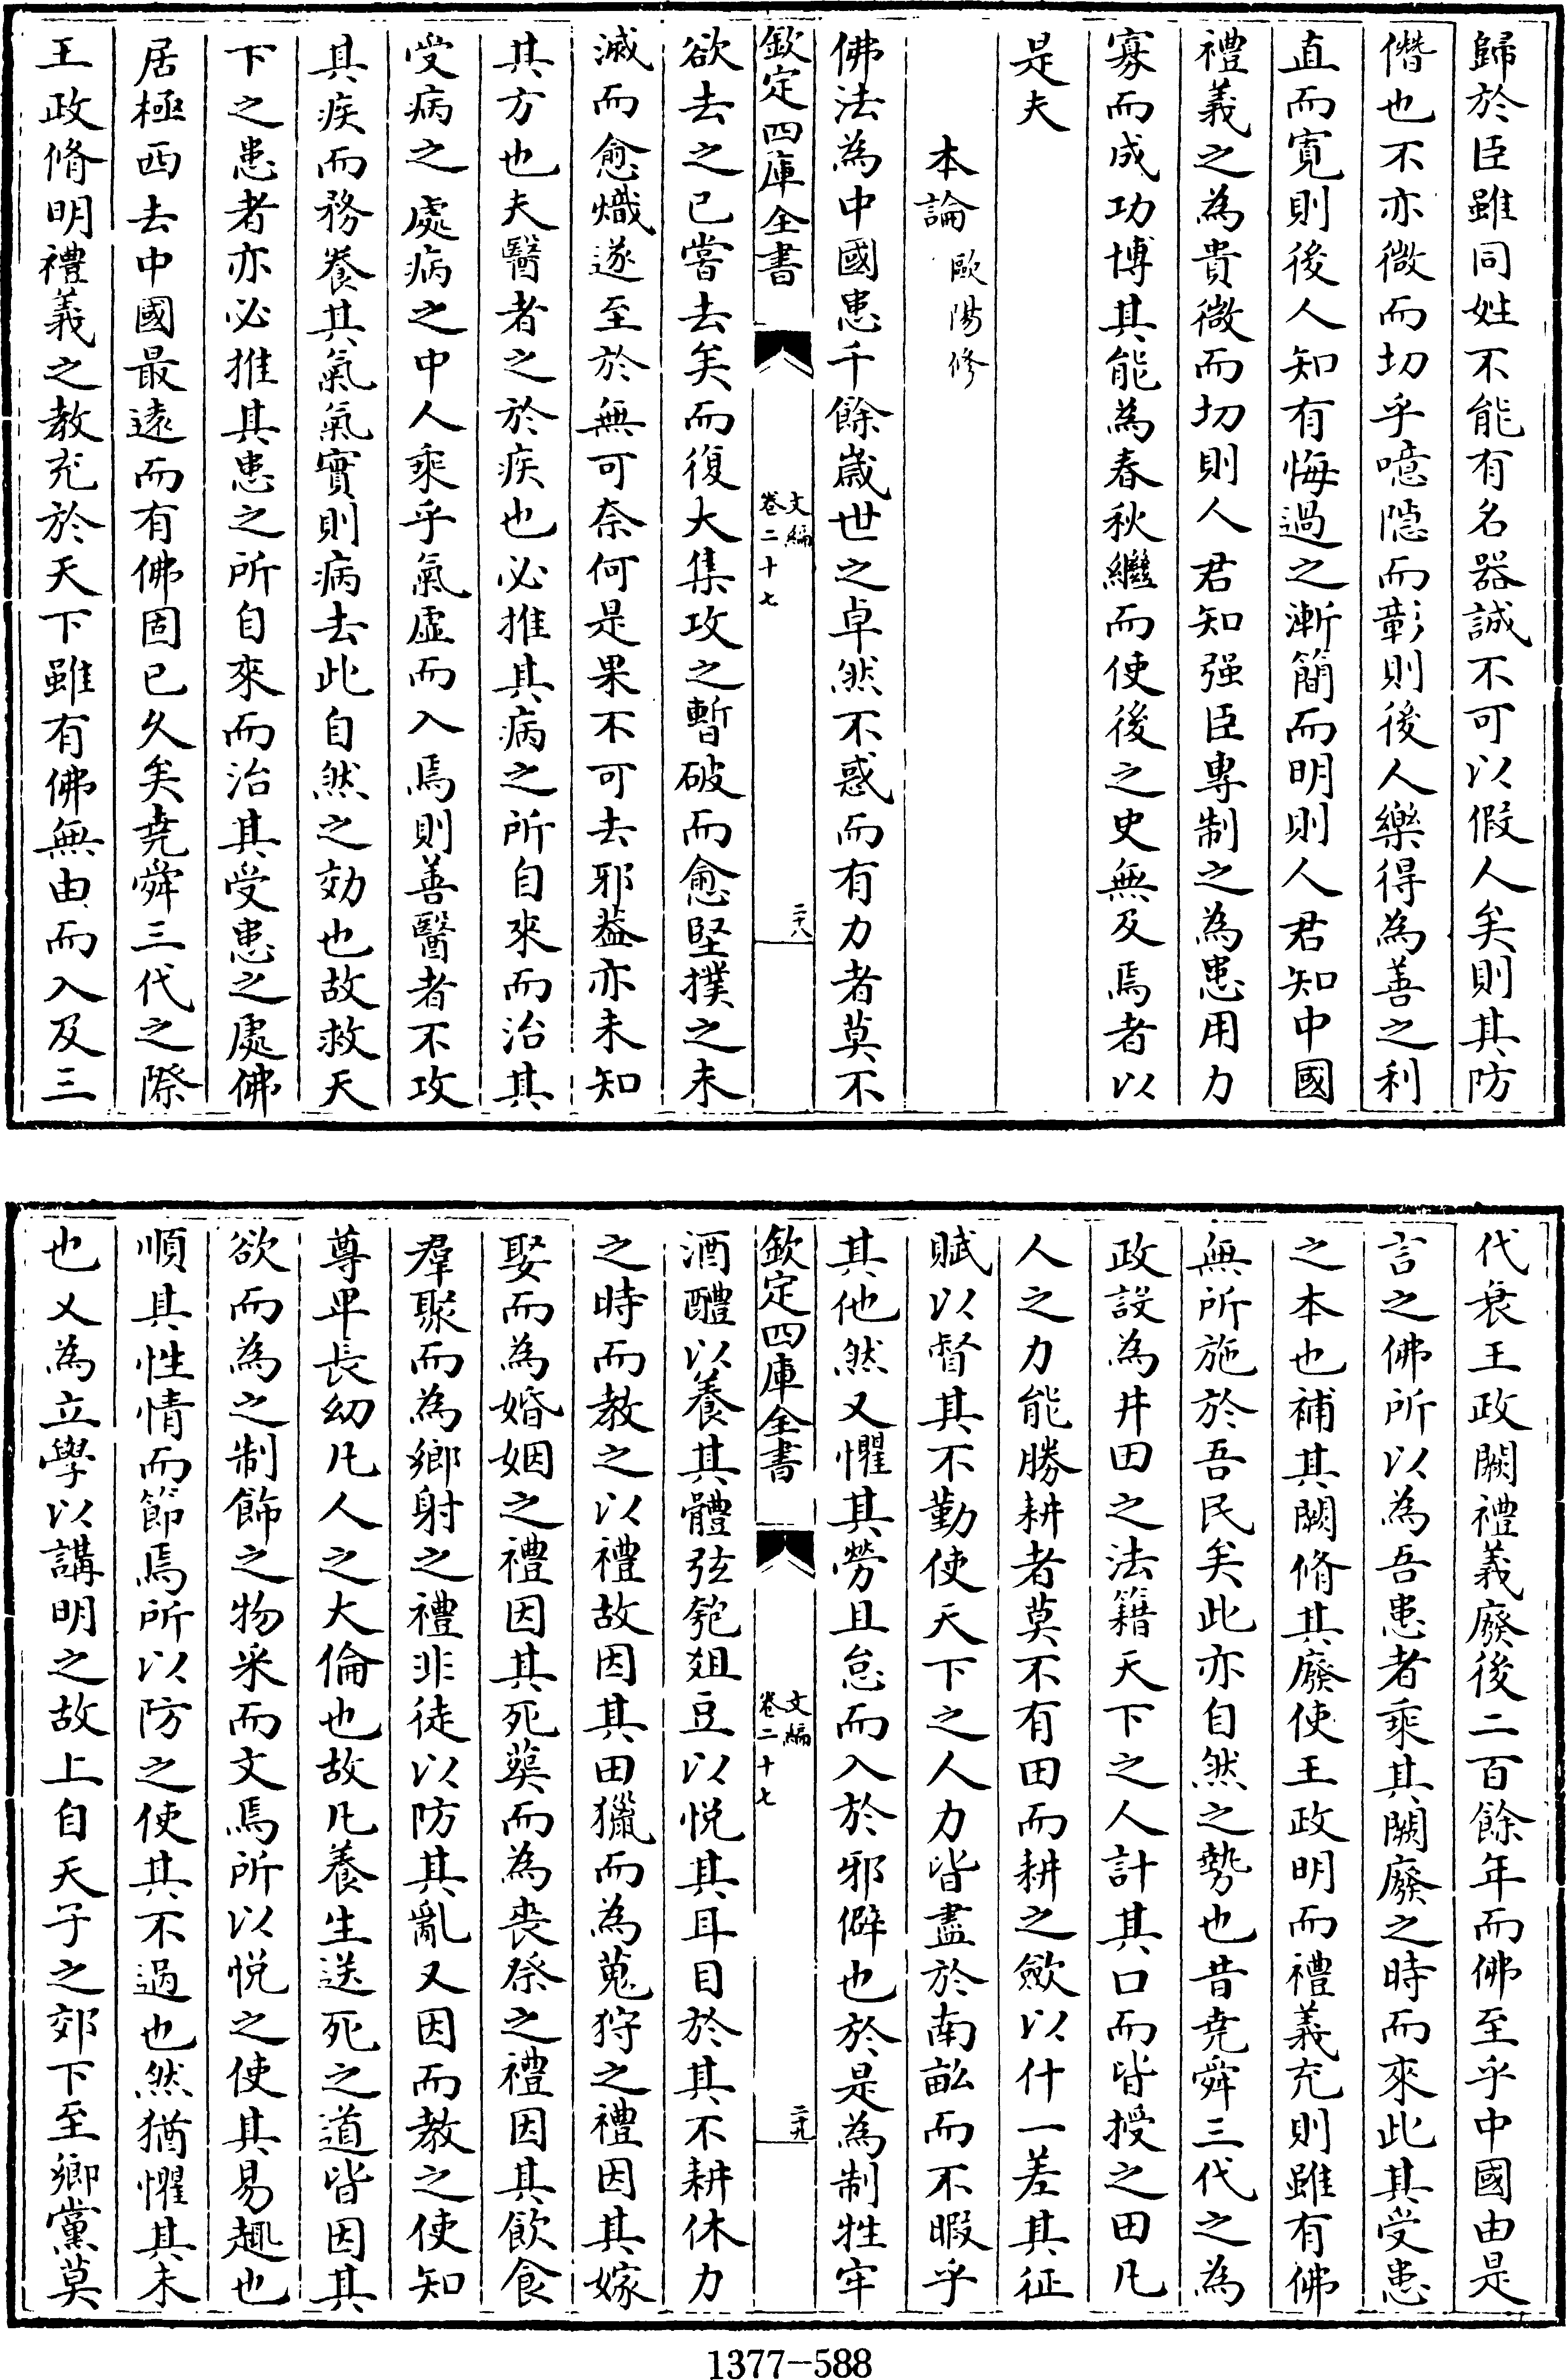 歸於臣雖同姓不能有名器誠不可以假人矣則其防
僭也不亦微而切乎噫隱而彰則後人樂得為善之利
直而寛則後人知有悔過之漸簡而明則人君知中國
禮義之為貴微而切則人君知强臣專制之為患用力
寡而成功博其能為春秋繼而使後之史無及焉者以
是夫
本論 歐陽修
佛法為中國患千餘歲世之卓然不惑而有力者莫不
欽定四庫全書
文編
卷二十七
二十八
欲去之已嘗去矣而復大集攻之暫破而愈堅撲之未
滅而愈熾遂至於無可奈何是果不可去邪葢亦未知
其方也夫醫者之於疾也必推其病之所自來而治其
受病之處病之中人乘乎氣虛而入焉則善醫者不攻
其疾而務養其氣氣實則病去此自然之効也故救天
下之患者亦必推其患之所自來而治其受患之處佛
居極西去中國最遠而有佛固已久矣堯舜三代之際
王政脩明禮義之教充於天下雖有佛無由而入及三
代衰王政闕禮義廢後二百餘年而佛至乎中國由是
言之佛所以為吾患者乘其闕廢之時而來此其受患
之本也補其闕脩其廢使王政明而禮義充則雖有佛
無所施於吾民矣此亦自然之勢也昔堯舜三代之為
政設為井田之法籍天下之人計其口而皆授之田凡
人之力能勝耕者莫不有田而耕之歛以什一差其征
賦以督其不勤使天下之人力皆盡於南畝而不暇乎
其他然又懼其勞且怠而入於邪僻也於是為制牲牢
欽定四庫全書
文編
卷二十七
二十九
酒醴以養其體弦匏爼豆以悦其耳目於其不耕休力
之時而教之以禮故因其田獵而為蒐狩之禮因其嫁
娶而為婚姻之禮因其死葬而為喪祭之禮因其飲食
羣聚而為鄉射之禮非徒以防其亂又因而教之使知
尊卑長幼凡人之大倫也故凡養生送死之道皆因其
欲而為之制飾之物采而文焉所以悦之使其易趣也
順其性情而節焉所以防之使其不過也然猶懼其未
也乂為立學以講明之故上自天子之郊下至鄉黨莫
1377-588